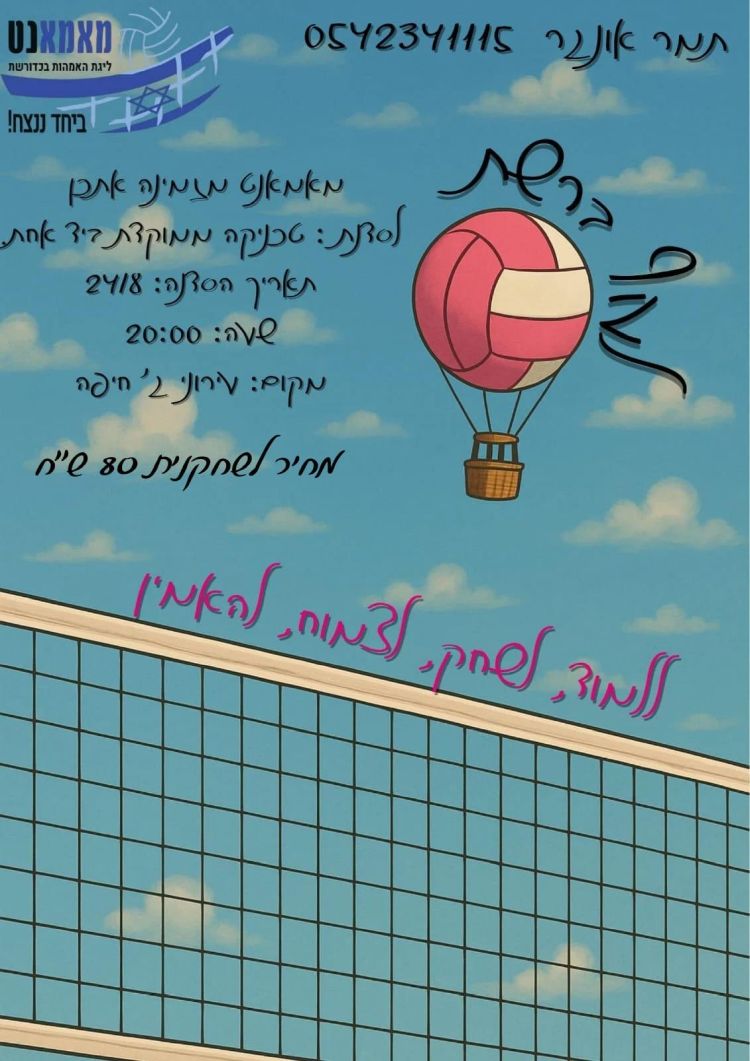 מאמאנט
ליגת האמהות בכדורשת
ביחד ננצח!
תמר אונגר 0542341115
לעוף ברשת
מאמאנט מזמינה אתכן
לסדנת: טכניקה ממוקדת ביד אחת.
תאריך הסדנה: 24/8
שעה: 20:00
מקום: עירוני ג' חיפה
מחיר לשחקנית 80 ש"ח
ללמוד, לשחק, לצמוח, להאמין